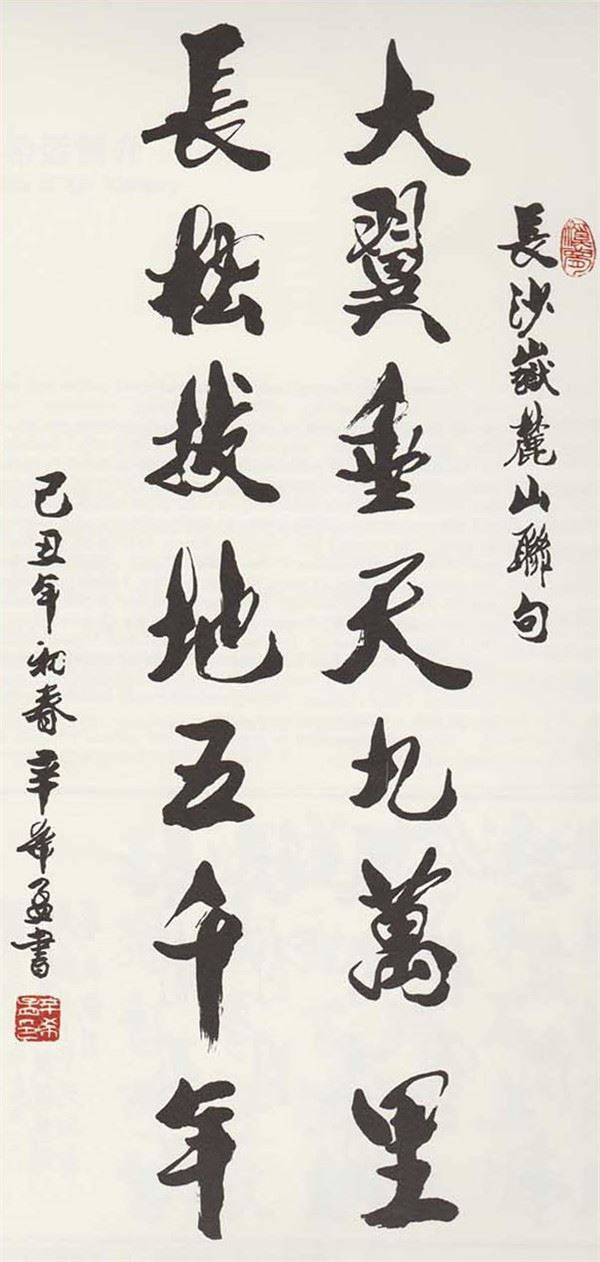 長沙嶽麓山聯句
大翼垂天九萬里
長松拔地五千年
己丑年初春辛希孟書